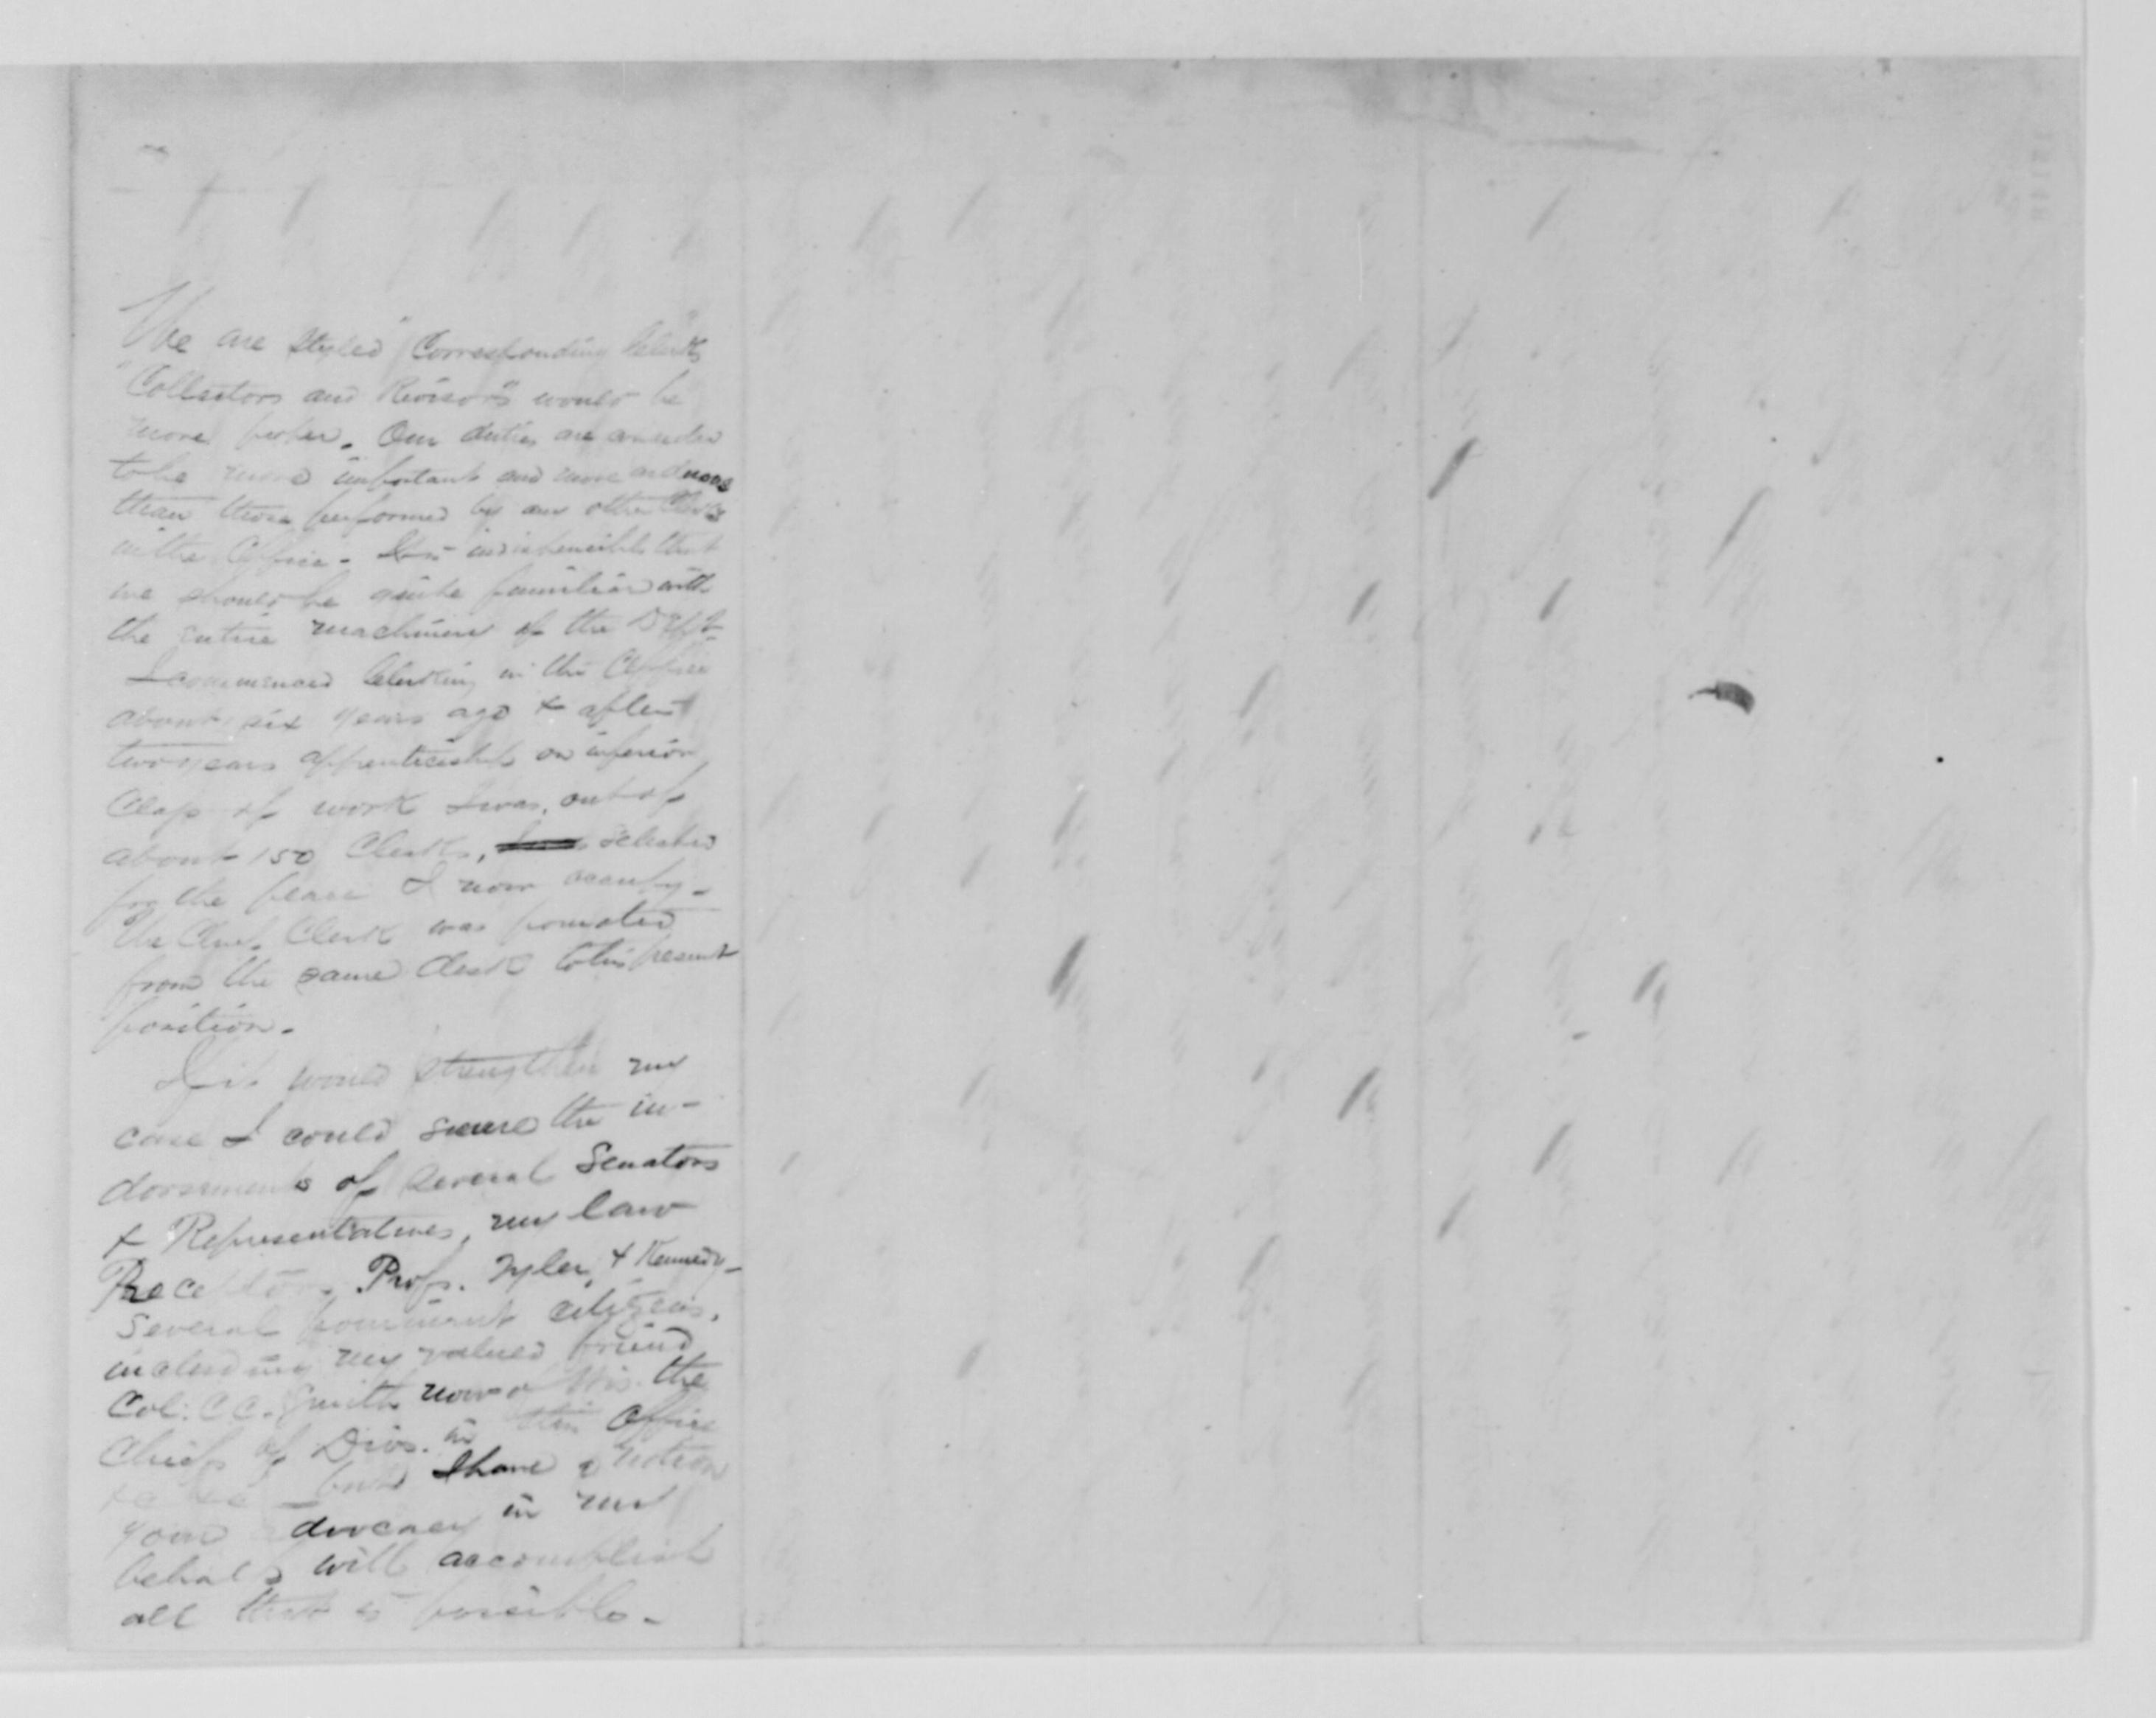 We are styled "Corresponding Clerks"
"Collectors and Revisors" would be
more proper. Our duties are consider
to be more important and more arduous
than those performed by any other Clerks
in the Office - It is indispensible that
we should be quite familiar with
the entire machinery of the Dept -
I commenced Clerking in this Office
about six years ago & after
two years apprenticeship on inferior
Class of work I was, out of
about 150 Clerks, selected
for the place I now occupy -
The Chief Clerk was promoted
from the same desk to his present
position -
If it would strengthen my
case I could secure the in-
dorsements of several Senators
& Representatives, my law
Preceptors, Profs. Tyler, & Kennedy -
Several prominent citizens,
including my valued friend
Col: C C. Smith now of Wis. the
Chiefs of Divs. in this Office
&c &c - but I have a notion
your advocacy in my
behalf will accomplish
all that is possible -